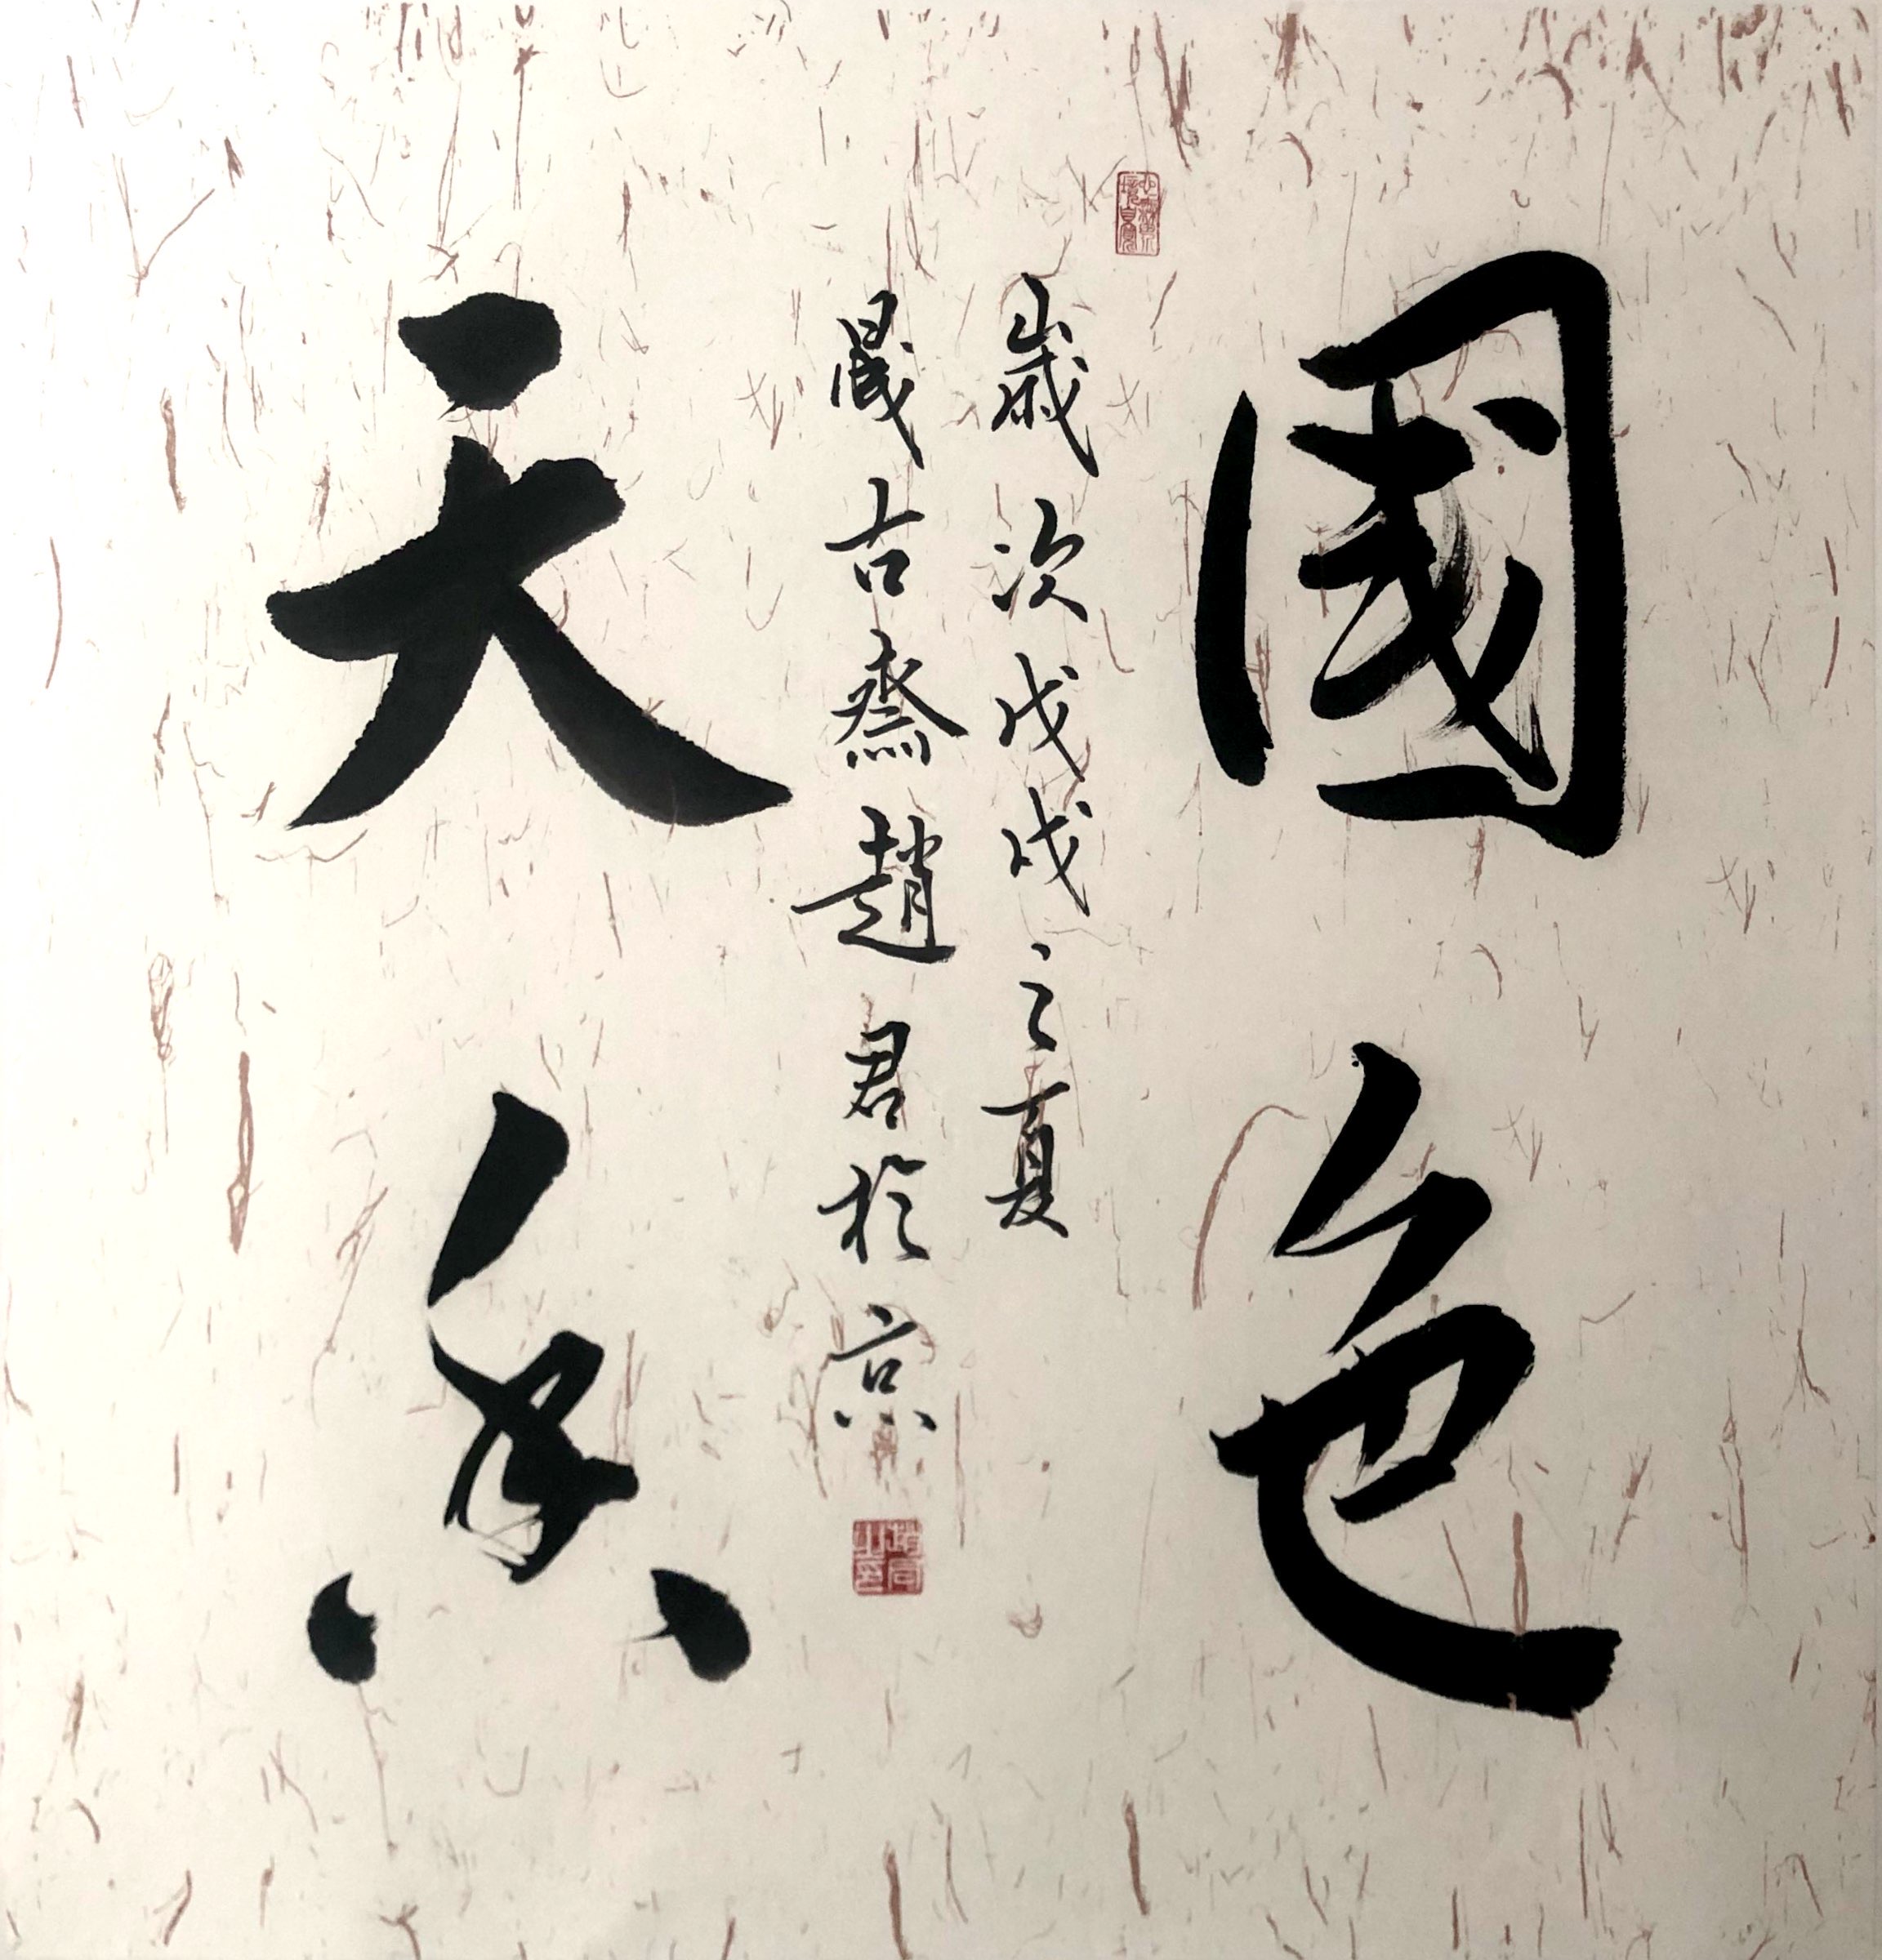 國色
天香
歲次戊戌之夏
晟古齋趙君於京